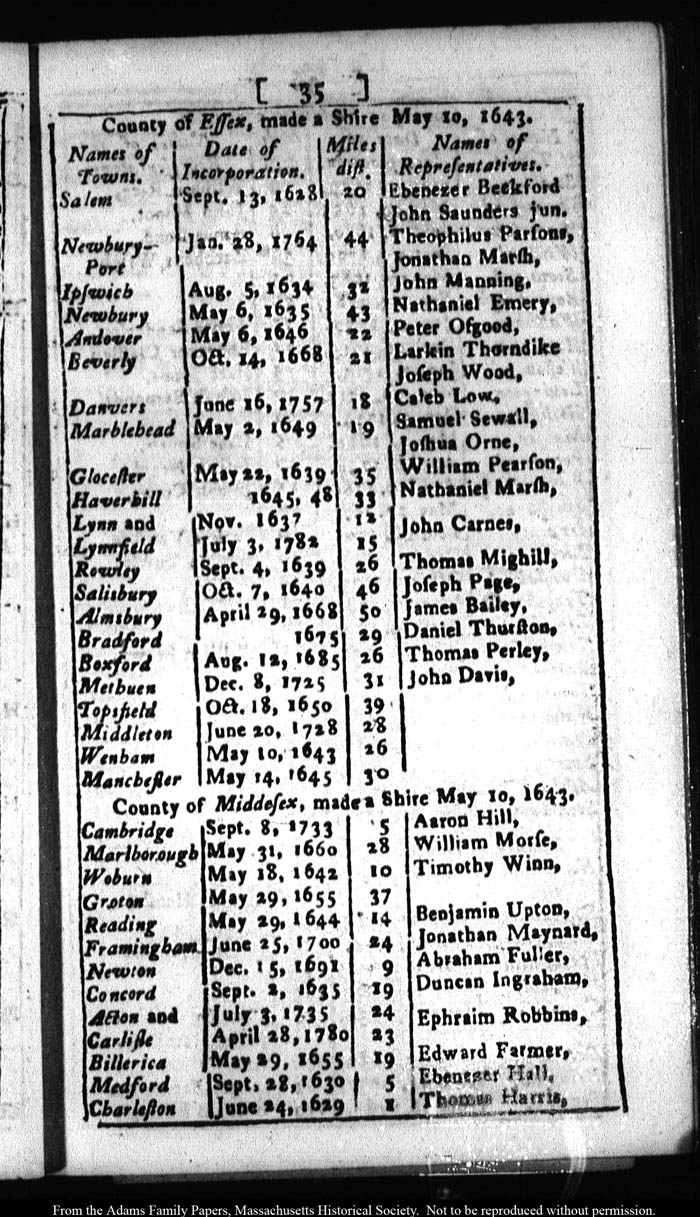 [ 35 ]
County of Eſſex, made a Shire May 10, 1643.
Names of Towns. Date of Incorporation. Miles diſt. Names of Repreſentatives.
Salem Sept. 13, 1628 20 Ebenezer Beckford
John Saunders jun.
Newbury- Jan. 28, 1764 44 Theophilus Parſons,
Port Jonathan Marſh,
Ipſwich Aug. 5, 1634 32 John Manning,
Newbury May 6, 1635 43 Nathaniel Emery,
Andover May 6, 1646 22 Peter Oſgood,
Beverly Oct. 14, 1668 21 Larkin Thorndike
Joſeph Wood,
Danvers June 16, 1757 18 Caleb Low,
Marblehead May 2, 1649 19 Samuel Sewall,
Joſhua Orne,
Gloceſter May 22, 1639 35 William Pearſon,
Haverhill 1645, 48 33 Nathaniel Marſh,
Lynn and Nov. 1637 12 John Carnes,
Lynnfield July 3, 1782 15
Rowley Sept. 4, 1639 26 Thomas Mighill,
Salisbury Oct. 7, 1640 46 Joſeph Page,
Almsbury April 29, 1668 50 James Bailey,
Bradford 1675 29 Daniel Thurſton,
Boxford Aug. 12, 1685 26 Thomas Perley,
Methuen Dec. 8, 1725 31 John Davis,
Topsfield Oct. 18, 1650 39
Middleton June 20, 1728 28
Wenham May 10, 1643 26
Mancheſter May 14, 1645 30
County of Middeſex, made a Shire May 10, 1643.
Cambridge Sept. 8, 1733 5 Aaron Hill,
Marlborough May 31, 1660 28 William Morſe,
Woburn May 18, 1642 10 Timothy Winn,
Groton May 29, 1655 37
Reading May 29, 1644 14 Benjamin Upton,
Framingham June 25, 1700 24 Jonathan Maynard,
Newton Dec. 15, 1691 9 Abraham Fuller,
Concord Sept. 2, 1635 19 Duncan Ingraham,
Acton and July 3, 1735 24 Ephraim Robbins,
Carliſle April 28, 1780 23
Billerica May 29, 1655 19 Edward Farmer,
Medford Sept. 28, 1630 5 Ebenezer Hall,
Charleſton June 24, 1629 1 Thomas Harris,
From the Adams Family Papers, Massachusetts Historical Society. Not to be reproduced without permission.